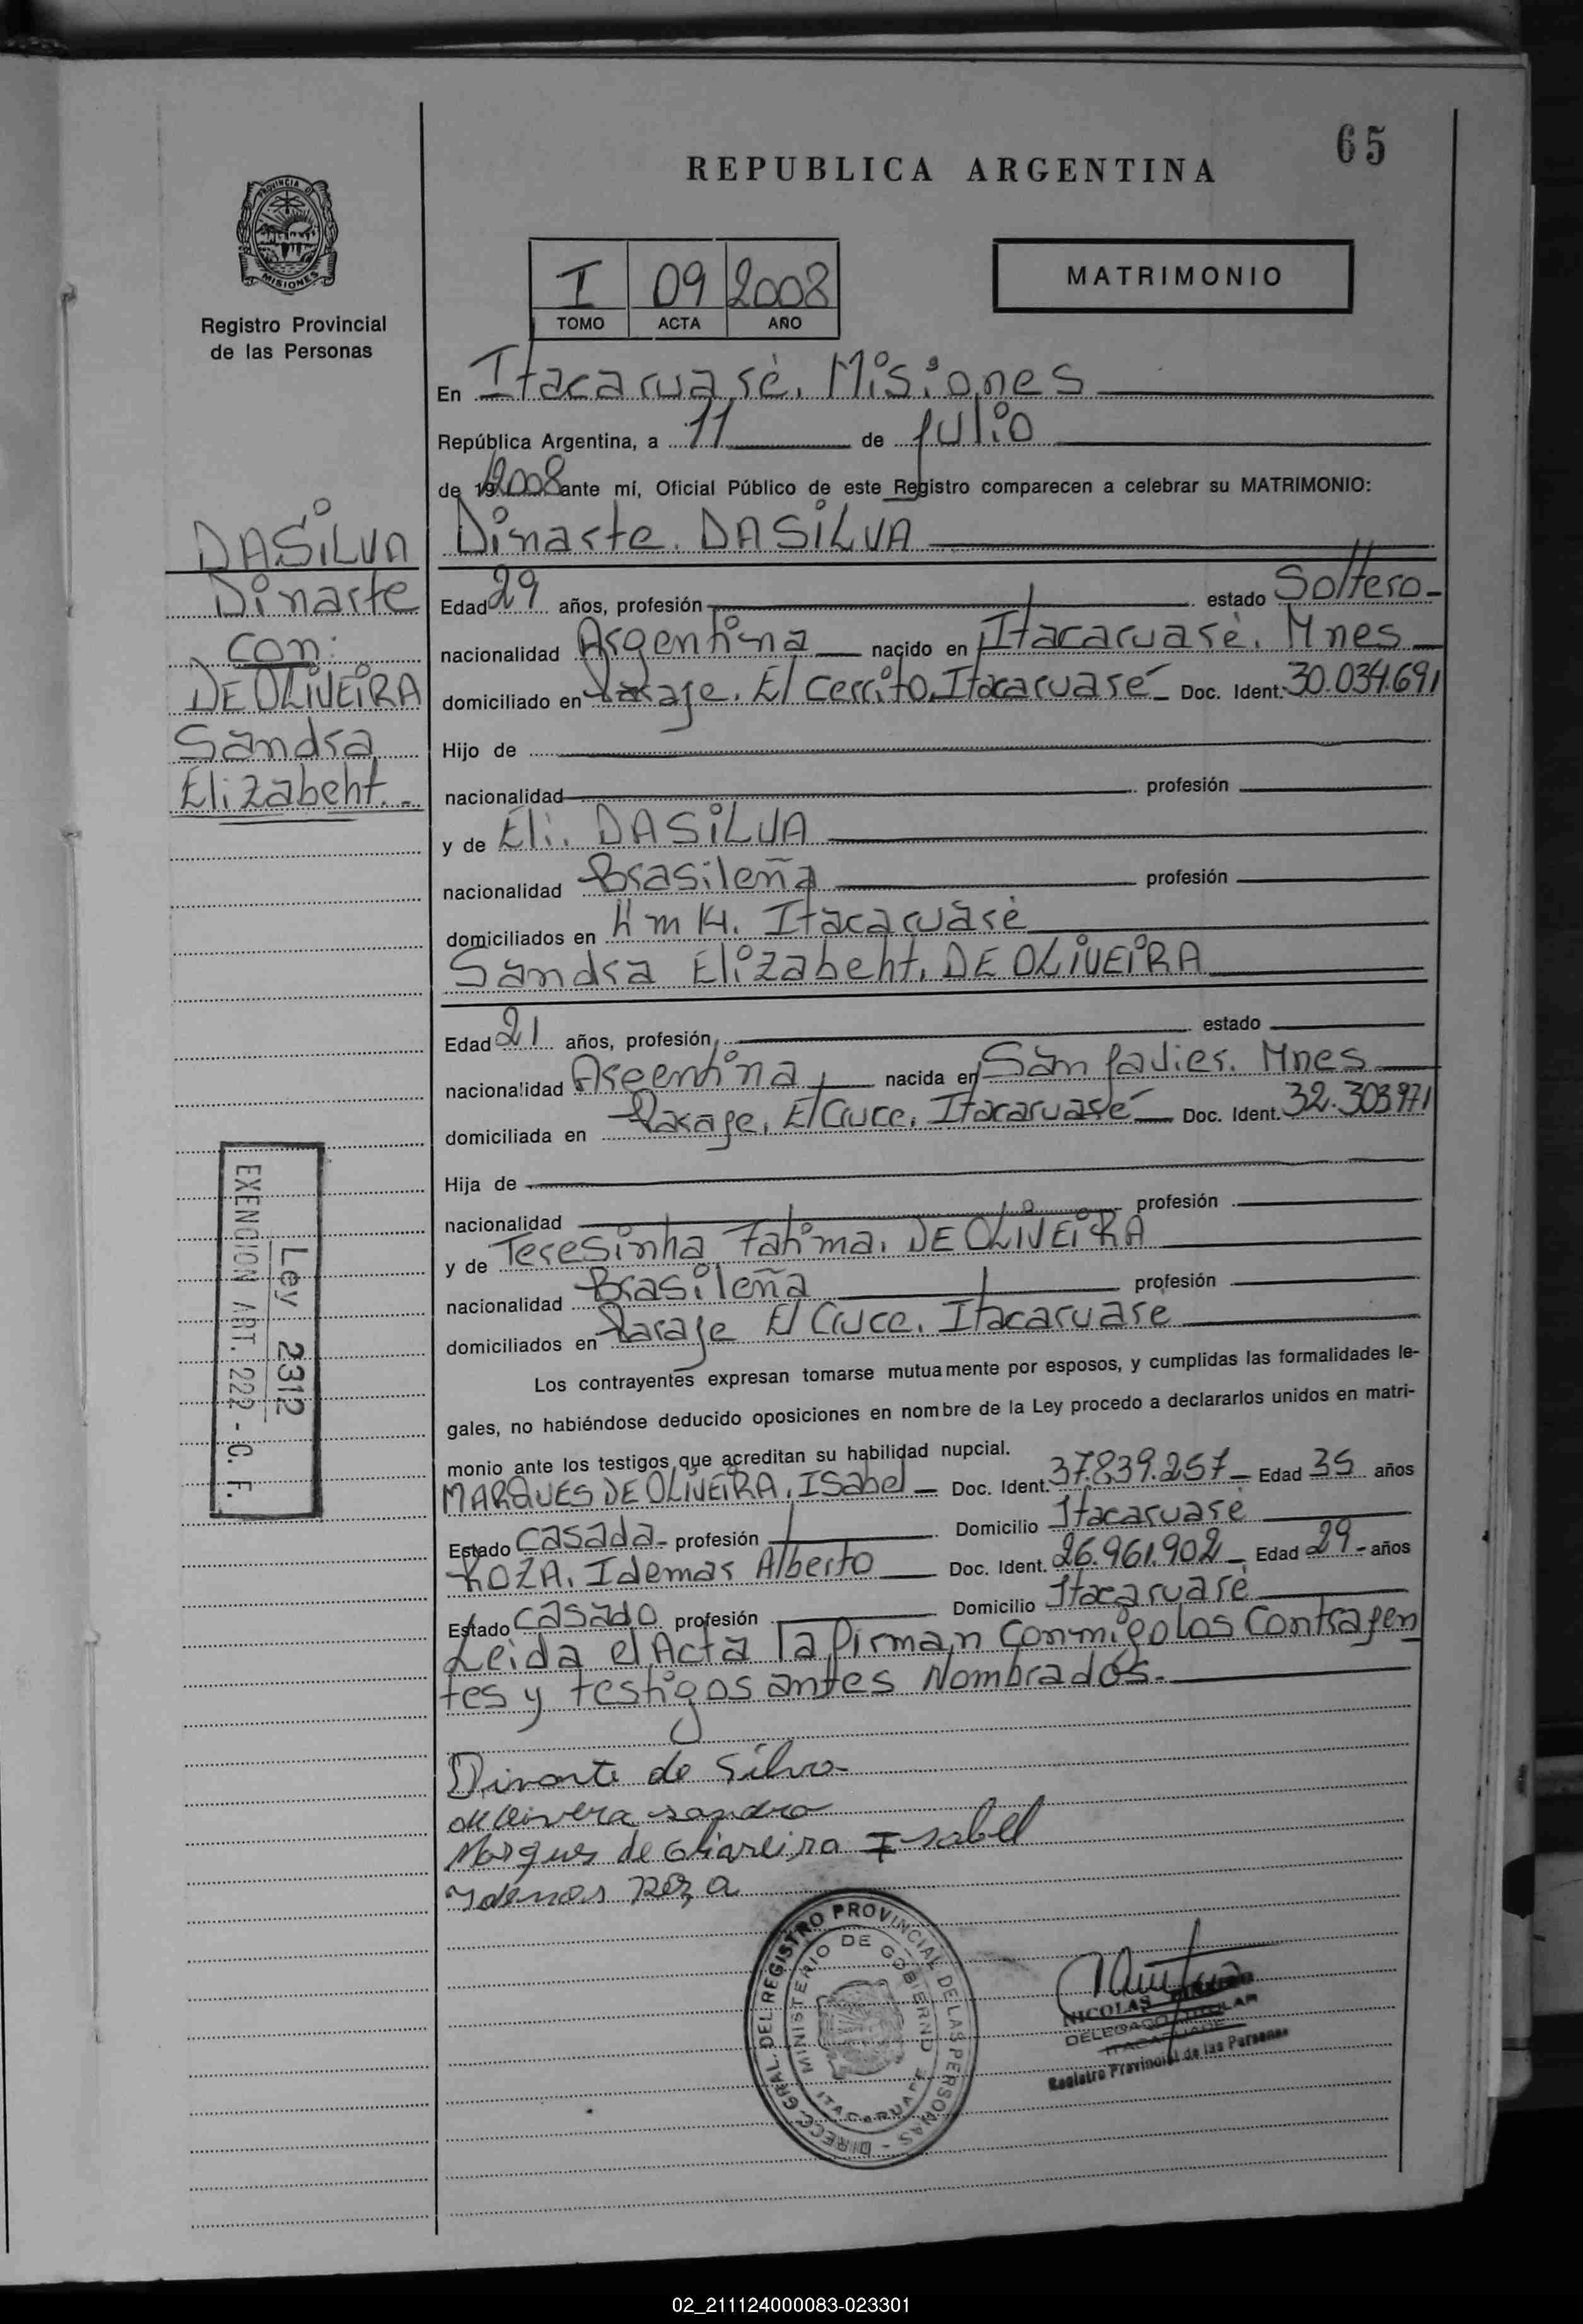 65
REPUBLICA ARGENTINA
PROVINCIA DE
MISIONES
Registro Provincial
de las Personas
I 09 2008
TOMO ACTA AÑO
MATRIMONIO
En Itacaruasé. Misiones
República Argentina, a 11 de Julio
de 19 2008 ante mí, Oficial Público de este Registro comparecen a celebrar su MATRIMONIO:
DASiLVA
Dinarte
con:
DEOLIVEIRA
Sandra
Elizabeht.-
Dinarte. DASiLVA
Edad 29 años, profesión estado Soltero-
nacionalidad Argentina nacido en Itacaruaré. Mnes
domiciliado en Paraje. El Cerrito. Itacaruaré Doc. Ident. 30.034.691
Hijo de
nacionalidad profesión
y de Eli. DASiLVA
nacionalidad Brasileña profesión
domiciliados en Km 14. Itacaruaré
Sandra Elizabeht. DE OLiVEiRA
Edad 21 años, profesión estado
nacionalidad Argentina nacida en San Javier. Mnes
domiciliada en Paraje. El Cruce. Itacaruaré Doc. Ident. 32.303971
Hija de
nacionalidad profesión
y de Teresinha Fatima. DE OLiVEiRA
nacionalidad Brasileña profesión
domiciliados en Paraje El Cruce. Itacaruare
Los contrayentes expresan tomarse mutuamente por esposos, y cumplidas las formalidades le-
gales, no habiéndose deducido oposiciones en nombre de la Ley procedo a declararlos unidos en matri-
monio ante los testigos que acreditan su habilidad nupcial.
MARQUES DE OLiVEiRA. ISabel Doc. Ident. 37.839.257 Edad 35 años
Estado Casada- profesión Domicilio Itacaruaré
ROZA. Idemar Alberto Doc. Ident. 26.961.902 Edad 29- años
Estado Casado profesión Domicilio Itacaruaré
Leida el Acta la firman conmigo los Contrayen
tes y testigos antes Nombrados.-
Dinarte da Silva
sandra
Marques de Isabel
Roza
Ley 2312
EXENCION ART. 222 - C. F.
DIRECC. GRAL. DEL REGISTRO PROVINCIAL DE LAS PERSONAS
MINISTERIO DE GOBIERNO
ITACARUARE
NICOLAS
DELEGADO TITULAR
ITACARUARE
Registro Provincial de las Personas
02_211124000083-023301